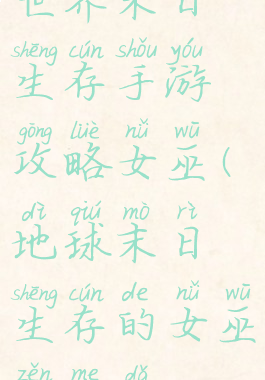 世界末日
shēng cún shǒu yóu
生存手游
gōng lüè nǚ wū
攻略女巫(
dì qiú mò rì
地球末日
shēng cún de nǚ wū
生存的女巫
zěn me dǎ